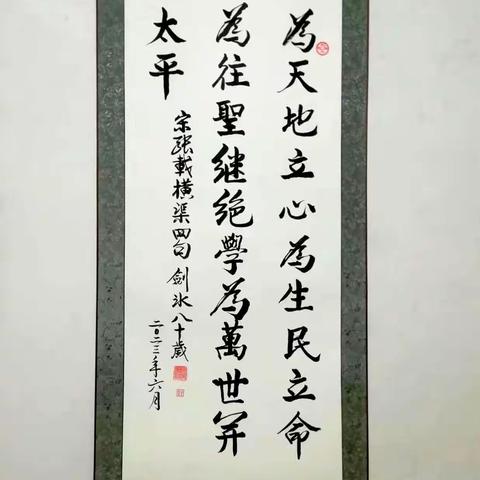 為天地立心為生民立命
為往聖继绝學為萬世开
太平
宗張載横渠四句 劍冰八十歲
二〇二三年六月